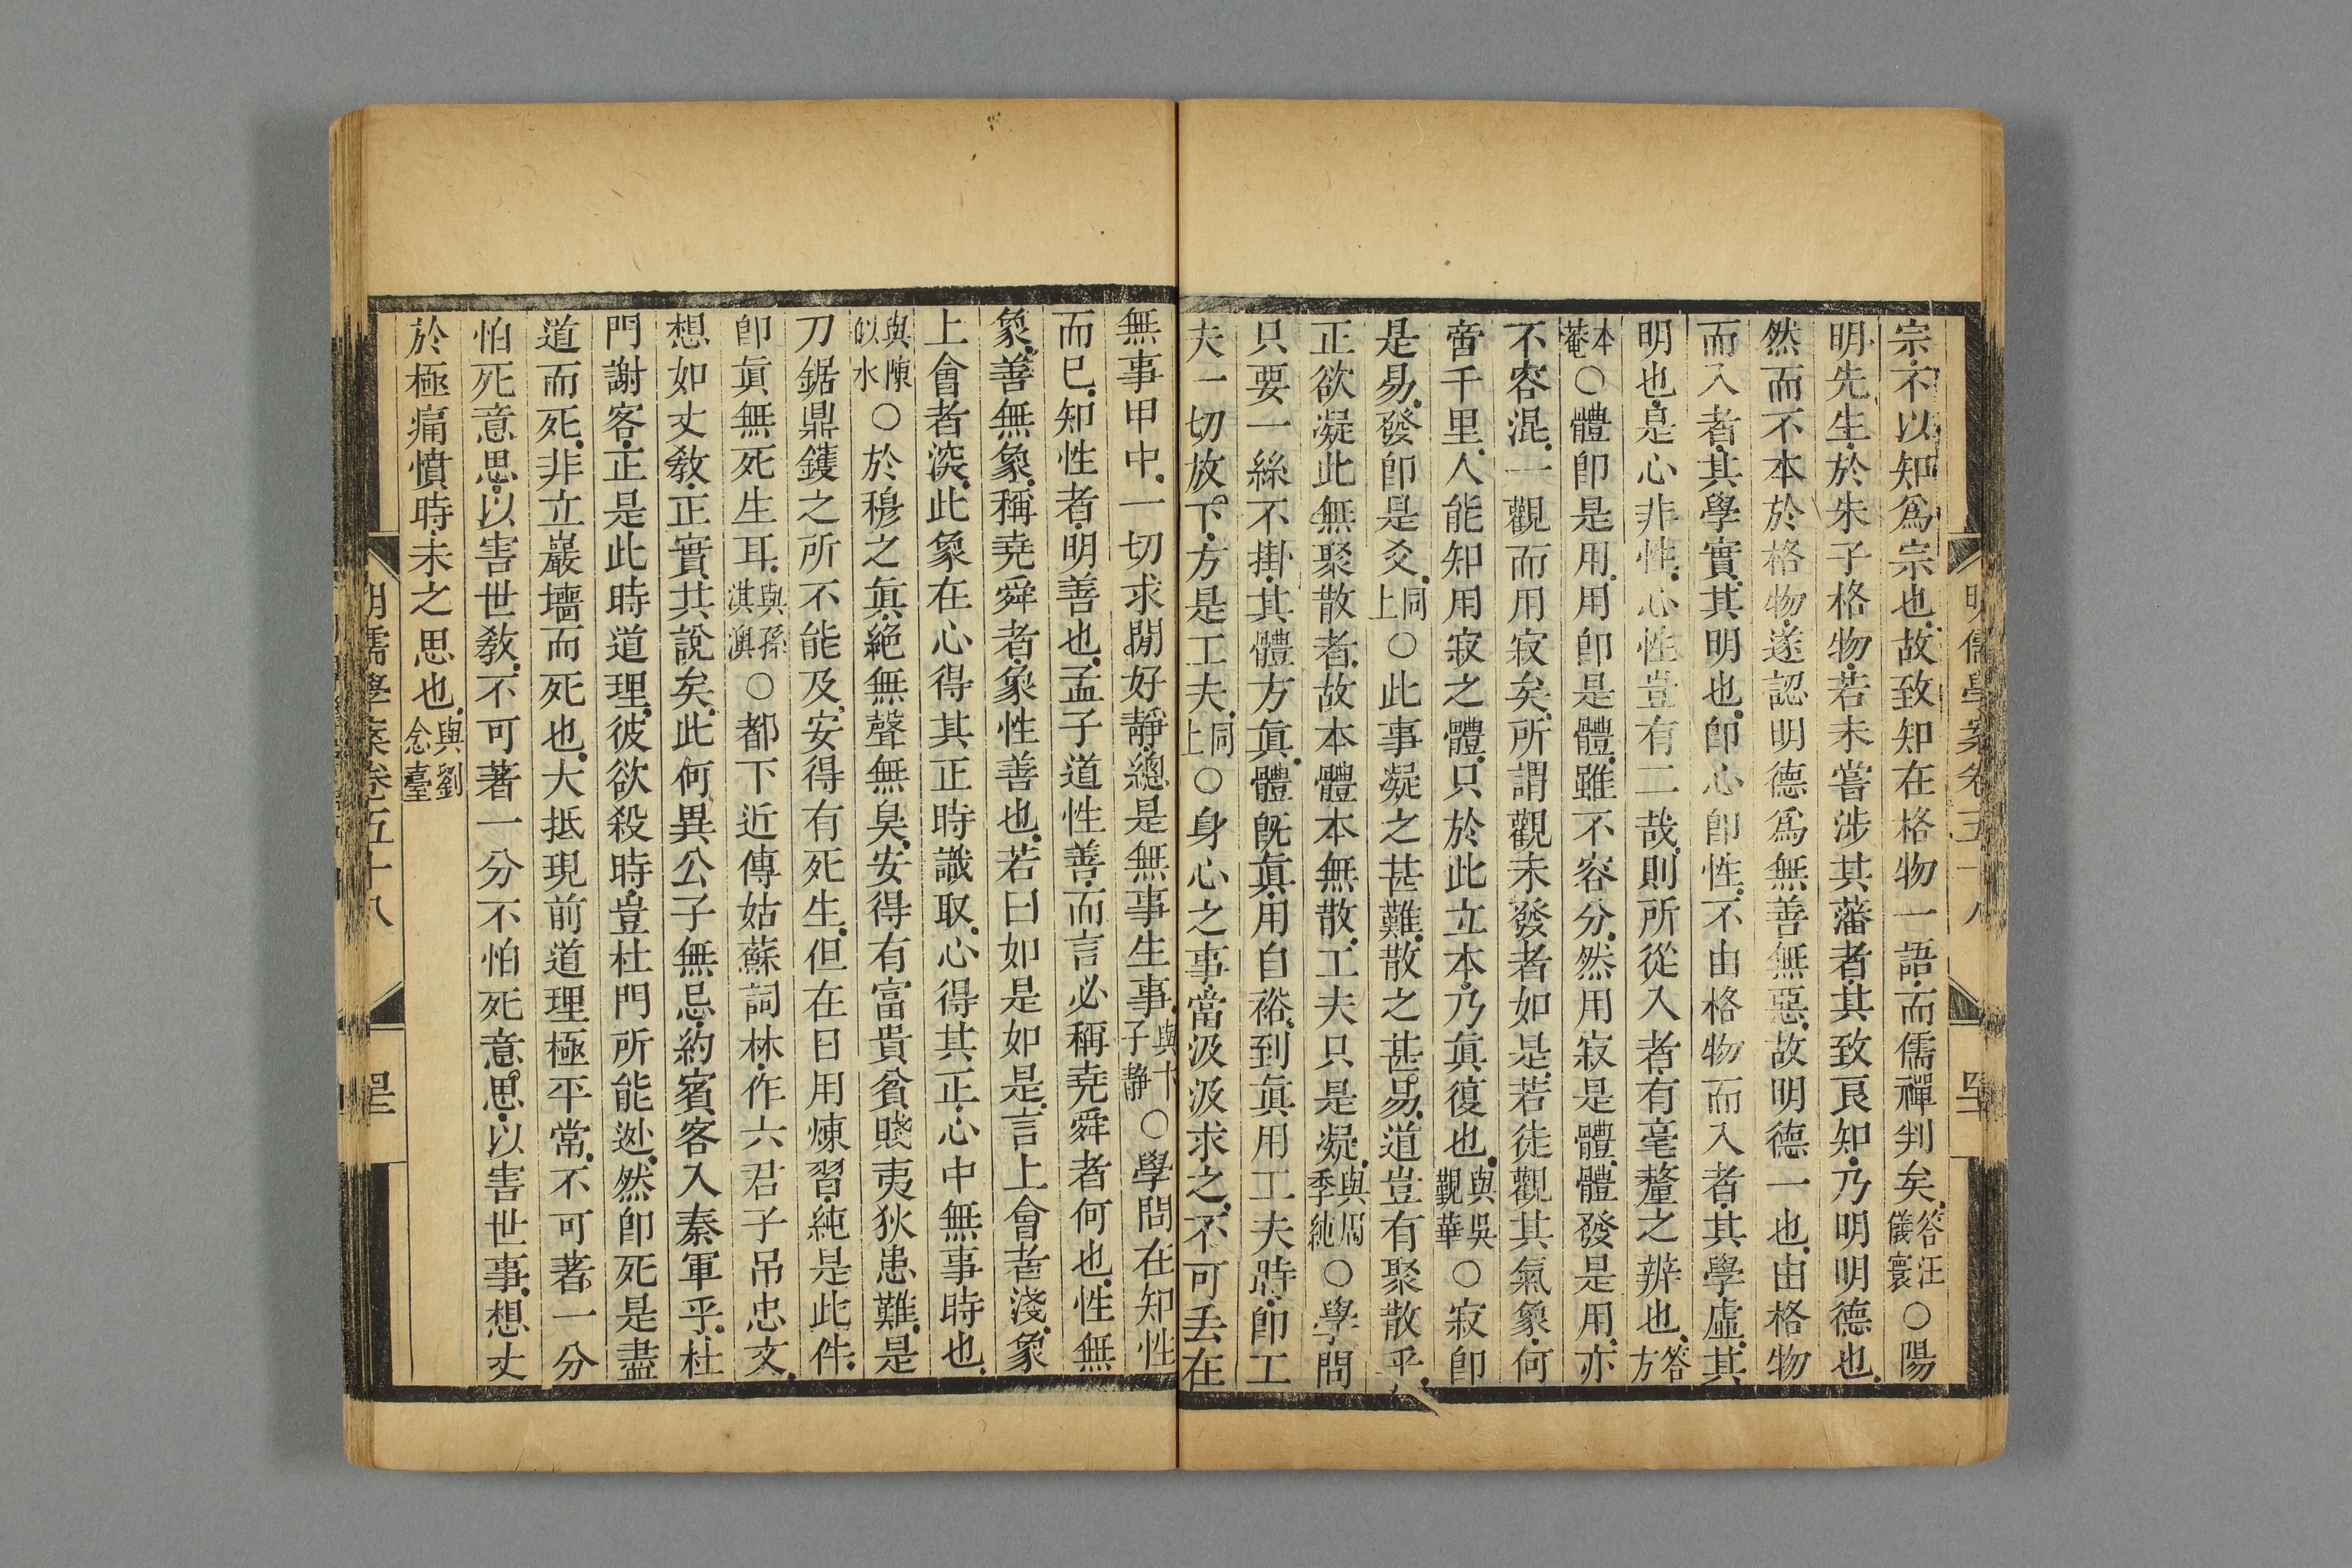 宗不以知爲宗也故致知在格物一語而儒禪判矣答汪儀寰○陽
明先生於朱子格物若未嘗涉其藩者其致良知乃明明德也
然而不本於格物遂認明德爲無善無惡故明德一也由格物
而入者其學實其明也卽心卽性不由格物而入者其學虛其
明也是心非性心性豈有二哉則所從入者有毫釐之辨也答方
本菴○體卽是用用卽是體雖不容分然用寂是體體發是用亦
不容混一觀而用寂矣所謂觀未發者如是若徒觀其氣象何
啻千里人能知用寂之體只於此立本乃眞復也與吳覲華○寂卽
是易發卽是爻同上○此事凝之甚難散之甚易道豈有聚散乎
正欲凝此無聚散者故本體本無散工夫只是凝與周季純○學問
只要一絲不掛其體方眞體旣眞用自裕到眞用工夫時卽工
夫一切放下方是工夫同上○身心之事當汲汲求之不可丢在
無事甲中一切求閒好靜總是無事生事與卞子靜○學問在知性
而已知性者明善也孟子道性善而言必稱堯舜者何也性無
象善無象稱堯舜者象性善也若曰如是如是言上會者淺象
上會者深此象在心得其正時識取心得其正心中無事時也
與陳似水○於穆之眞絕無聲無臭安得有富貴貧賤夷狄患難是
刀鋸鼎鑊之所不能及安得有死生但在日用煉習純是此件
卽眞無死生耳與孫淇澳○都下近傳姑蘇詞林作六君子吊忠文
想如丈敎正實其說矣此何異公子無忌約賓客入秦軍乎杜
門謝客正是此時道理彼欲殺時豈杜門所能逃然卽死是盡
道而死非立巖墻而死也大抵現前道理極平常不可著一分
怕死意思以害世敎不可著一分不怕死意思以害世事想丈
於極痛憤時未之思也與劉念臺
明儒學案卷五十八